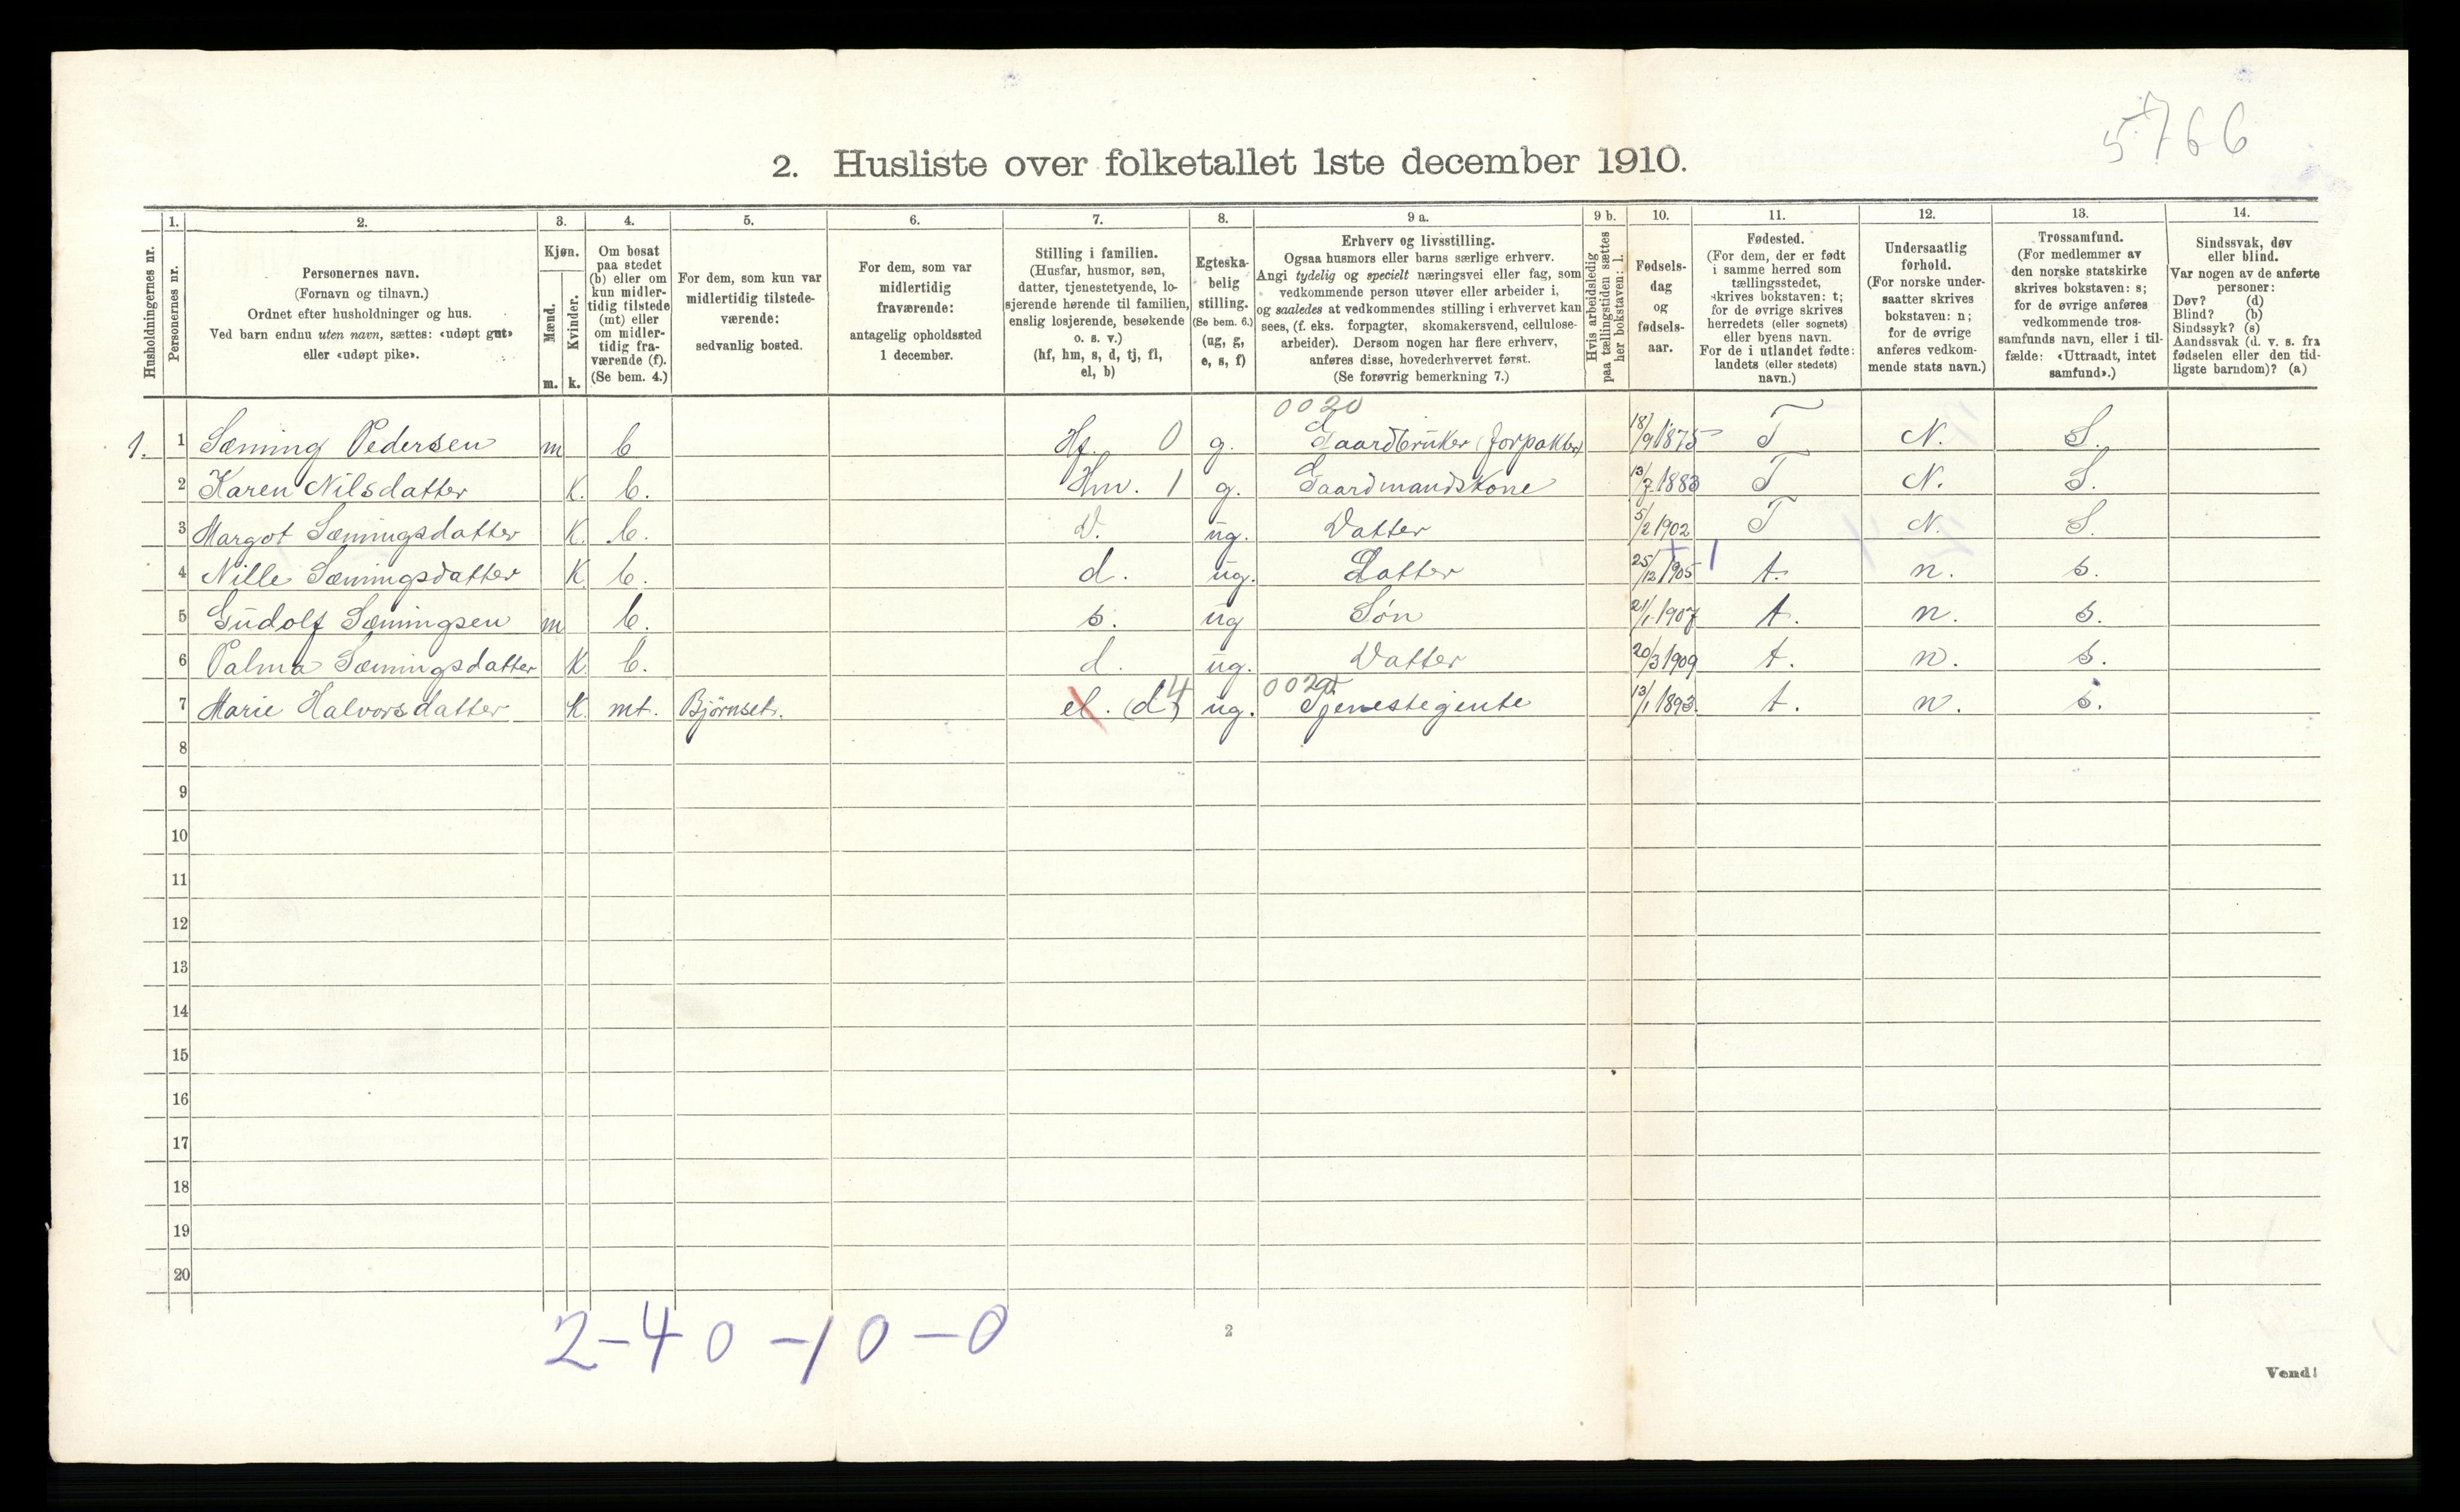 5766
2. Husliste over folketallet 1ste december 1910.
Husholdningernes nr.
1.
Personernes nr.
2.
Personernes navn.
(Fornavn og tilnavn.)
Ordnet efter husholdninger og hus.
Ved barn endnu uten navn, sættes: «udøpt gut»
eller «udøpt pike».
3.
Kjøn.
Mænd.
Kvinder.
m. k.
4.
Om bosat
paa stedet
(b) eller om
kun midler-
tidig tilstede
(mt) eller
om midler-
tidig fra-
værende (f).
(Se bem. 4.)
5.
For dem, som kun var
midlertidig tilstede-
værende:
sedvanlig bosted.
6.
For dem, som var
midlertidig
fraværende:
antagelig opholdssted
1 december.
7.
Stilling i familien.
(Husfar, husmor, søn,
datter, tjenestetyende, lo-
sjerende hørende til familien,
enslig losjerende, besøkende
o. s. v.)
(hf, hm, s, d, tj, fl,
el, b)
8.
Egteska-
belig
stilling.
(Se bem. 6.)
(ug, g,
e, s, f)
9 a.
Erhverv og livsstilling.
Ogsaa husmors eller barns særlige erhverv.
Angi tydelig og specielt næringsvei eller fag, som
vedkommende person utøver eller arbeider i,
og saaledes at vedkommendes stilling i erhvervet kan
sees, (f. eks. forpagter, skomakersvend, cellulose-
arbeider). Dersom nogen har flere erhverv,
anføres disse, hovederhvervet først.
(Se forøvrig bemerkning 7.)
9 b.
Hvis arbeidsledig
paa tællingstiden sættes
her bokstaven: l.
10.
Fødsels-
dag
og
fødsels-
aar.
11.
Fødested.
(For dem, der er født
i samme herred som
tællingsstedet,
skrives bokstaven: t;
for de øvrige skrives
herredets (eller sognets)
eller byens navn.
For de i utlandet fødte:
landets (eller stedets)
navn.)
12.
Undersaatlig
forhold.
(For norske under-
saatter skrives
bokstaven: n;
for de øvrige
anføres vedkom-
mende stats navn.)
13.
Trossamfund.
(For medlemmer av
den norske statskirke
skrives bokstaven: s;
for de øvrige anføres
vedkommende tros-
samfunds navn, eller i til-
fælde: «Uttraadt, intet
samfund».)
14.
Sindssvak, døv
eller blind.
Var nogen av de anførte
personer:
Døv? (d)
Blind? (b)
Sindssyk? (s)
Aandssvak (d. v. s. fra
fødselen eller den tid-
ligste barndom)? (a)
0020
1. 1 Sæming Pedersen m b Hf. 0 g. Gaardbruker (forpakter) 18/9 1875 T N. S.
2 Karen Nilsdatter K. b. Hm. 1 g. Gaardmandskone 13/7 1883 T N. S.
3 Margot Sæmingsdatter K. b. D. ug. Datter 5/2 1902 T N. S.
4 Nille Sæmingsdatter K b. d. ug. Datter 25/12 1905 t. n. s.
5 Gudolf Sæmingsen m b. s. ug Søn 21/1 1907 t. n. s.
6 Palma Sæmingsdatter K b. d. ug. Datter 20/3 1909 t. n. s.
0020
7 Marie Halvorsdatter K mt. Björnset. el. (d) 4 ug. Tjenestegjente 13/1 1893. t. n. s.
8
9
10
11
12
13
14
15
16
17
18
19
20
2-4 0 -1 0 -0
2
Vend!